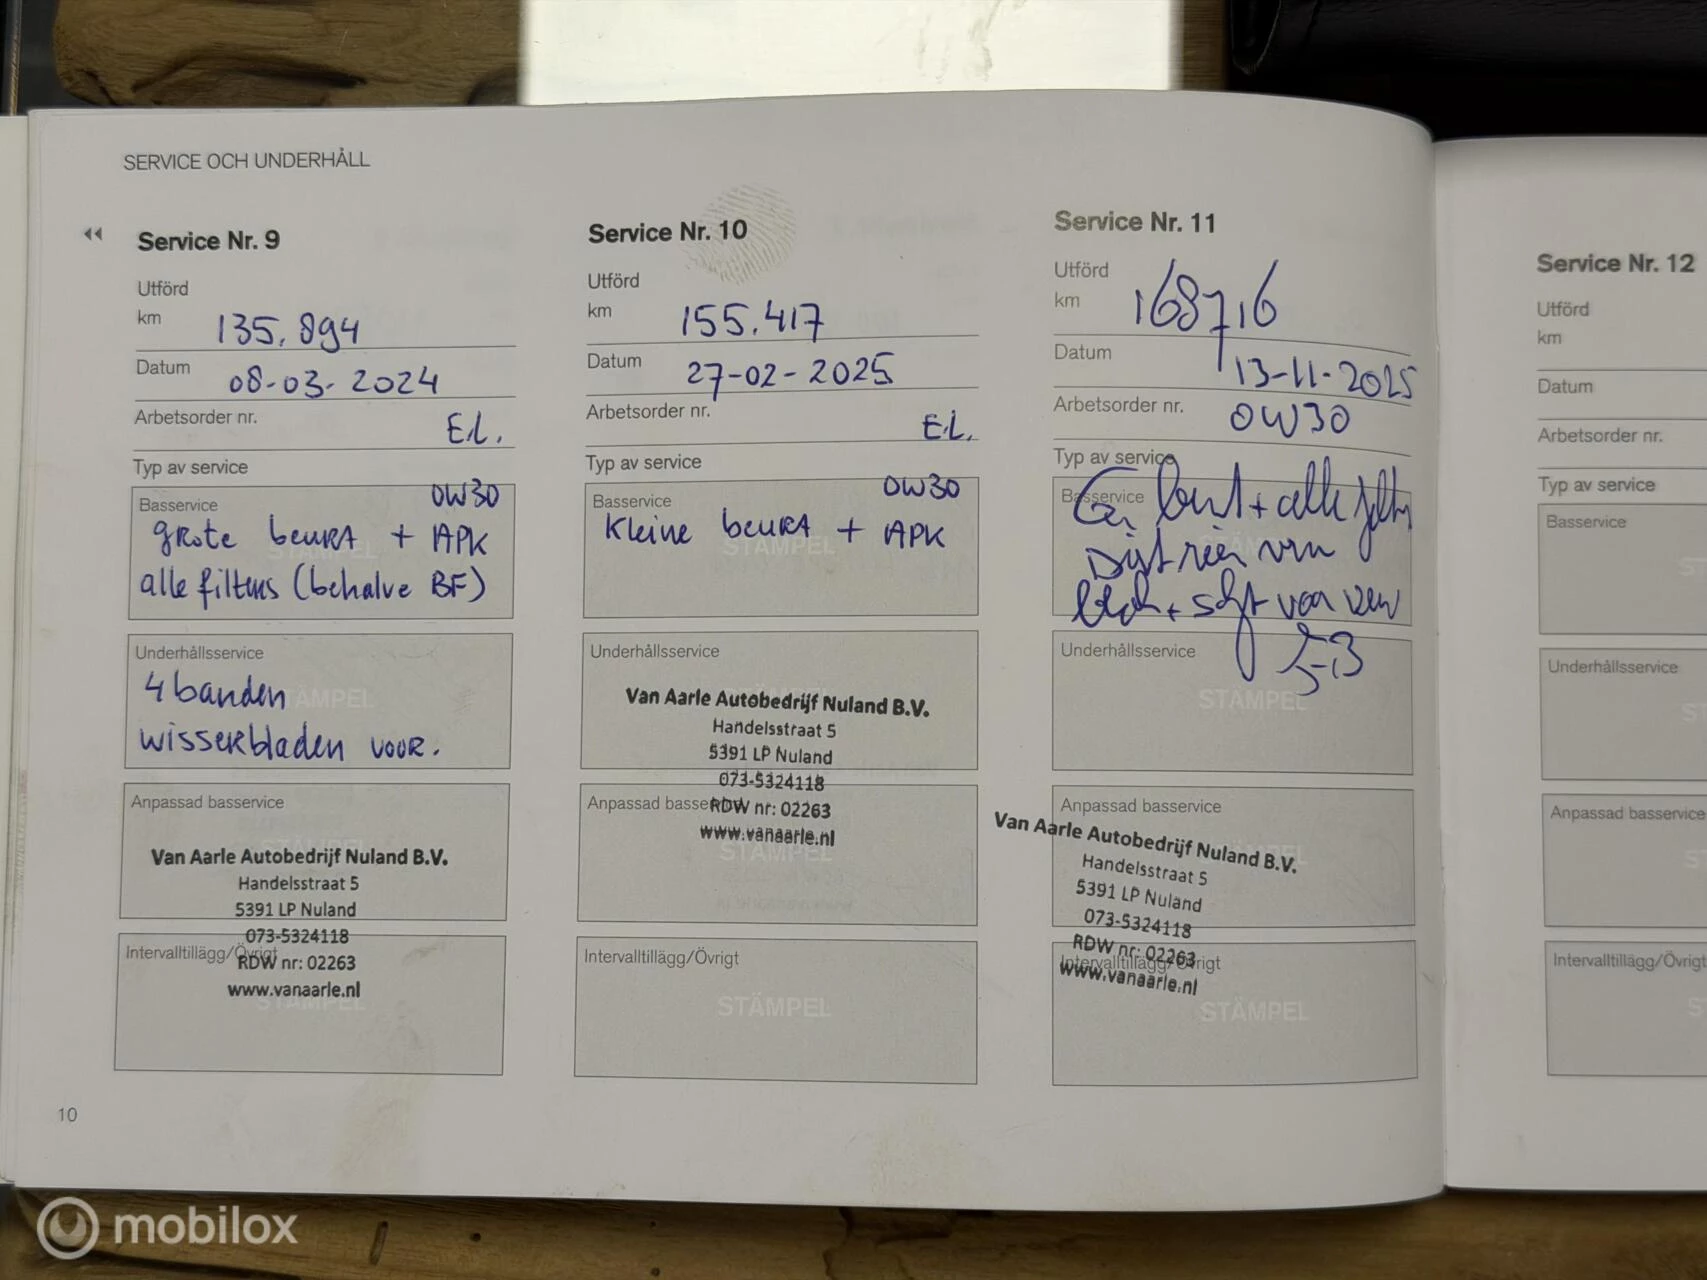 SERVICE OCH UNDERHÅLL
Service Nr. 9
Utförd
km 135.894
Datum 08-03-2024
Arbetsorder nr. E.L.
Typ av service
Basservice 0W30
grote beurt + APK
alle filters (behalve BF)
Underhållsservice
4 banden
STÄMPEL
wisserbladen voor.
Anpassad basservice
Van Aarle Autobedrijf Nuland B.V.
Handelsstraat 5
5391 LP Nuland
073-5324118
Intervalltillägg/Övrigt
RDW nr: 02263
www.vanaarle.nl
STÄMPEL
10
Service Nr. 10
Utförd
km 155.417
Datum 27-02-2025
Arbetsorder nr. E.L.
Typ av service
Basservice 0W30
kleine beurt + APK
STÄMPEL
Underhållsservice
Van Aarle Autobedrijf Nuland B.V.
Handelsstraat 5
5391 LP Nuland
073-5324118
Anpassad basservice
RDW nr: 02263
www.vanaarle.nl
STÄMPEL
Intervalltillägg/Övrigt
STÄMPEL
Service Nr. 11
Utförd
km 168716
Datum 13-11-2025
Arbetsorder nr. 0W30
Typ av service
Basservice
+ alle
Underhållsservice
STÄMPEL
Anpassad basservice
Van Aarle Autobedrijf Nuland B.V.
Handelsstraat 5
5391 LP Nuland
073-5324118
RDW nr: 02263
Intervalltillägg/Övrigt
www.vanaarle.nl
STÄMPEL
Service Nr. 12
Utförd
km
Datum
Arbetsorder nr.
Typ av service
Basservice
Underhållsservice
Anpassad basservice
Intervalltillägg/Övrigt
mobilox